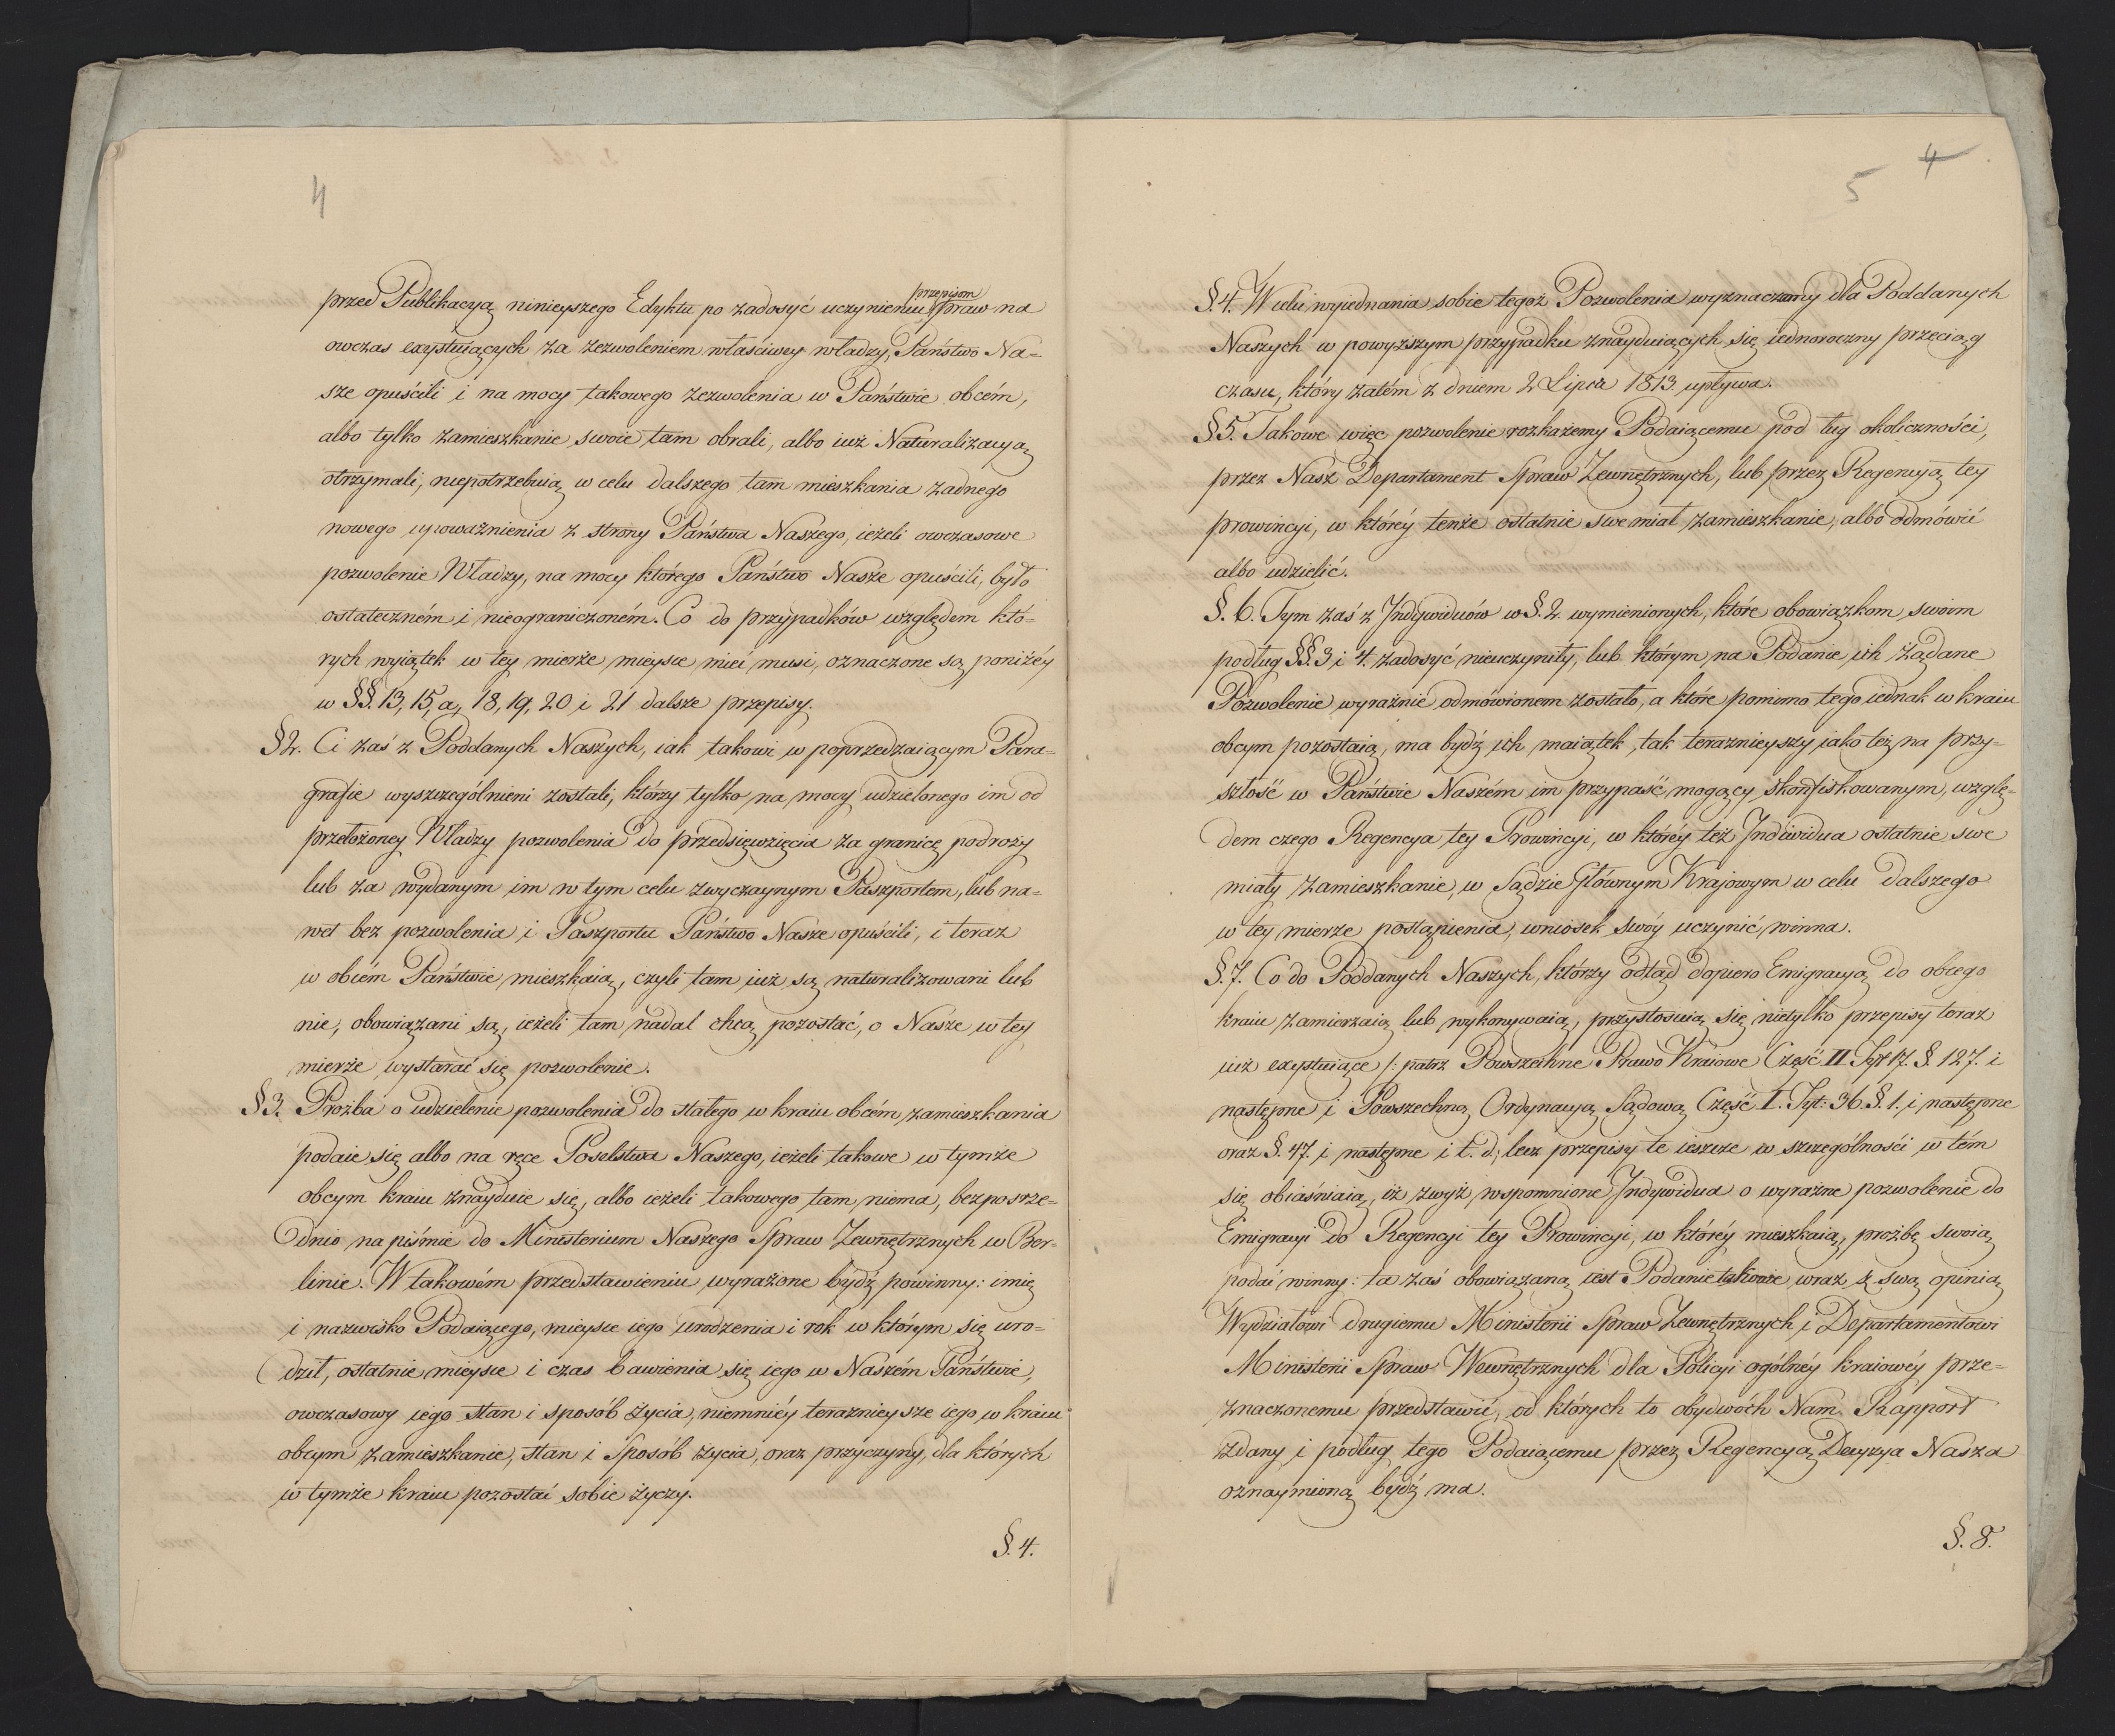 4
przed Publikacyą ninieyszego Edyktu po zadosyć uczynieniu przepisom praw na
owczas exystuiących za zezwoleniem właściwey władzy, Państwo Na-
sze opuścili i na mocy takowego zezwolenia w Państwie obcém,
albo tylko zamieszkanie swoie tam obrali, albo iuż Naturalizacyą
otrzymali, niepotrzebuią w celu dalszego tam mieszkania żadnego
nowego upoważnienia z strony Państwa Naszego, ieżeli owczasowe
pozwolenie Władzy, na mocy którego Państwo Nasze opuścili, było
ostateczném i nieograniczoném. Co do przypadków względem któ-
rych wyiątek w tey mierze mieysce mieć musi, oznaczone są poniżéy
w §§. 13, 15, a, 18, 19, 20 i 21 dalsze przepisy.
§ 2. Ci zaś z Poddanych Naszych, iak takowi w poprzedzaiącym Para-
grafie wyszczególnieni zostali, którzy tylko na mocy udzielonego im od
przełożoney Władzy pozwolenia do przedsięwzięcia za granicę podroży
lub za wydanym im w tym celu zwyczaynym Paszportem, lub na-
wet bez pozwolenia i Paszportu Państwo Nasze opuścili, i teraz
w obcém Państwie mieszkaią, czyli tam iuż są naturalizowani lub
nie, obowiązani są, ieżeli tam nadal chcą pozostać, o Nasze w tey
mierze wystarać się pozwolenie.
§ 3. Prożba o udzielenie pozwolenia do stałego w kraiu obcém zamieszkania
podaie się albo na ręce Poselstwa Naszego, ieżeli takowe w tymże
obcym kraiu znayduie się, albo ieżeli takowego tam niema, bezposrze-
dnio na piśmie do Ministerium Naszego Spraw Zewnętrznych w Ber-
linie. W takowém przedstawieniu wyrażone bydź powinny: imię
i nazwisko Podaiącego, mieysce iego urodzenia i rok w którym się uro-
dził, ostatnie mieysce i czas bawienia się iego w Naszém Państwie,
owczasowy iego stan i sposób życia, niemniéy teraznieysze iego w kraiu
obcym zamieszkanie, stan i Sposób życia, oraz przyczyny, dla których
w tymże kraiu pozostać sobie życzy.
§. 4.
4
5
§. 4. W celu wyiednania sobie tegoż Pozwolenia wyznaczamy dla Poddanych
Naszych w powyższym przypadku znayduiących się iednoroczny przeciąg
czasu, który zatém z dniem 2 Lipca 1813 upływa.
§ 5. Takowe więc pozwolenie rozkażemy Podaiącemu pod tuy okoliczności,
przez Nasz Departament Spraw Zewnętrznych, lub przez Regencyą tey
prowincyi, w któréy tenże ostatnie swe miał zamieszkanie, albo odmówić
albo udzielić.
§. 6. Tym zaś z Indywiduów w §. 2. wymienionych, które obowiązkom swoim
podług §§. 3 i 4. zadosyć nieuczyniły, lub którym na Podanie ich żądane
Pozwolenie wyraźnie odmówionem zostało, a które pomimo tego iednak w kraiu
obcym pozostaią, ma bydź ich maiątek, tak teraznieyszy iako też na przy-
szłość w Państwie Naszém im przypaść mogący skonfiskowanym, wzglę-
dem czego Regencya tey Prowincyi, w któréy też Indiwidua ostatnie swe
miały zamieszkanie, w Sądzie Głównym Krajowym w celu dalszego
w tey mierze postąpienia, wniosek swóy uczynić winna.
§. 7. Co do Poddanych Naszych, którzy odtąd dopiero Emigracyą do obcego
kraiu zamierzaią lub wykonywaią, przystosuią się nietylko przepisy teraz
iuż exystuiące /: patrz Powszechne Prawo Kraiowe Część II Tyt 17. §. 127. i
następne i Powszechną Ordynacyą Sądową Część I. Tyt: 36. §. 1. i następne
oraz §. 47. i następne i t. d., lecz przepisy te ieszcze w szczególności w tém
się obiaśniaią, iż zwyż wspomnione Indywidua o wyraźne pozwolenie do
Emigracyi do Regencyi tey Prowincyi, w któréy mieszkaią, prożbę swoią
podać winny: ta zaś obowiązaną iest Podanie takowe wraz z swą opinią
Wydziałowi drugiemu Ministerii Spraw Zewnętrznych i Departamentowi
Ministerii Spraw Wewnętrznych dla Policyi ogólnéy kraiowéy prze-
znaczonemu przedstawić, od których to obydwóch Nam Rapport
zdany i podług tego Podaiącemu przez Regencyą Decyzya Nasza
oznaymioną bydź ma.
§. 8.